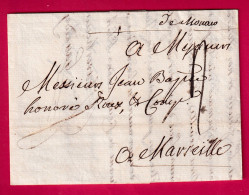 De Monaco
A Messieurs
Messieurs Jean Bap
honoré Roux, & Comp
A Marseille